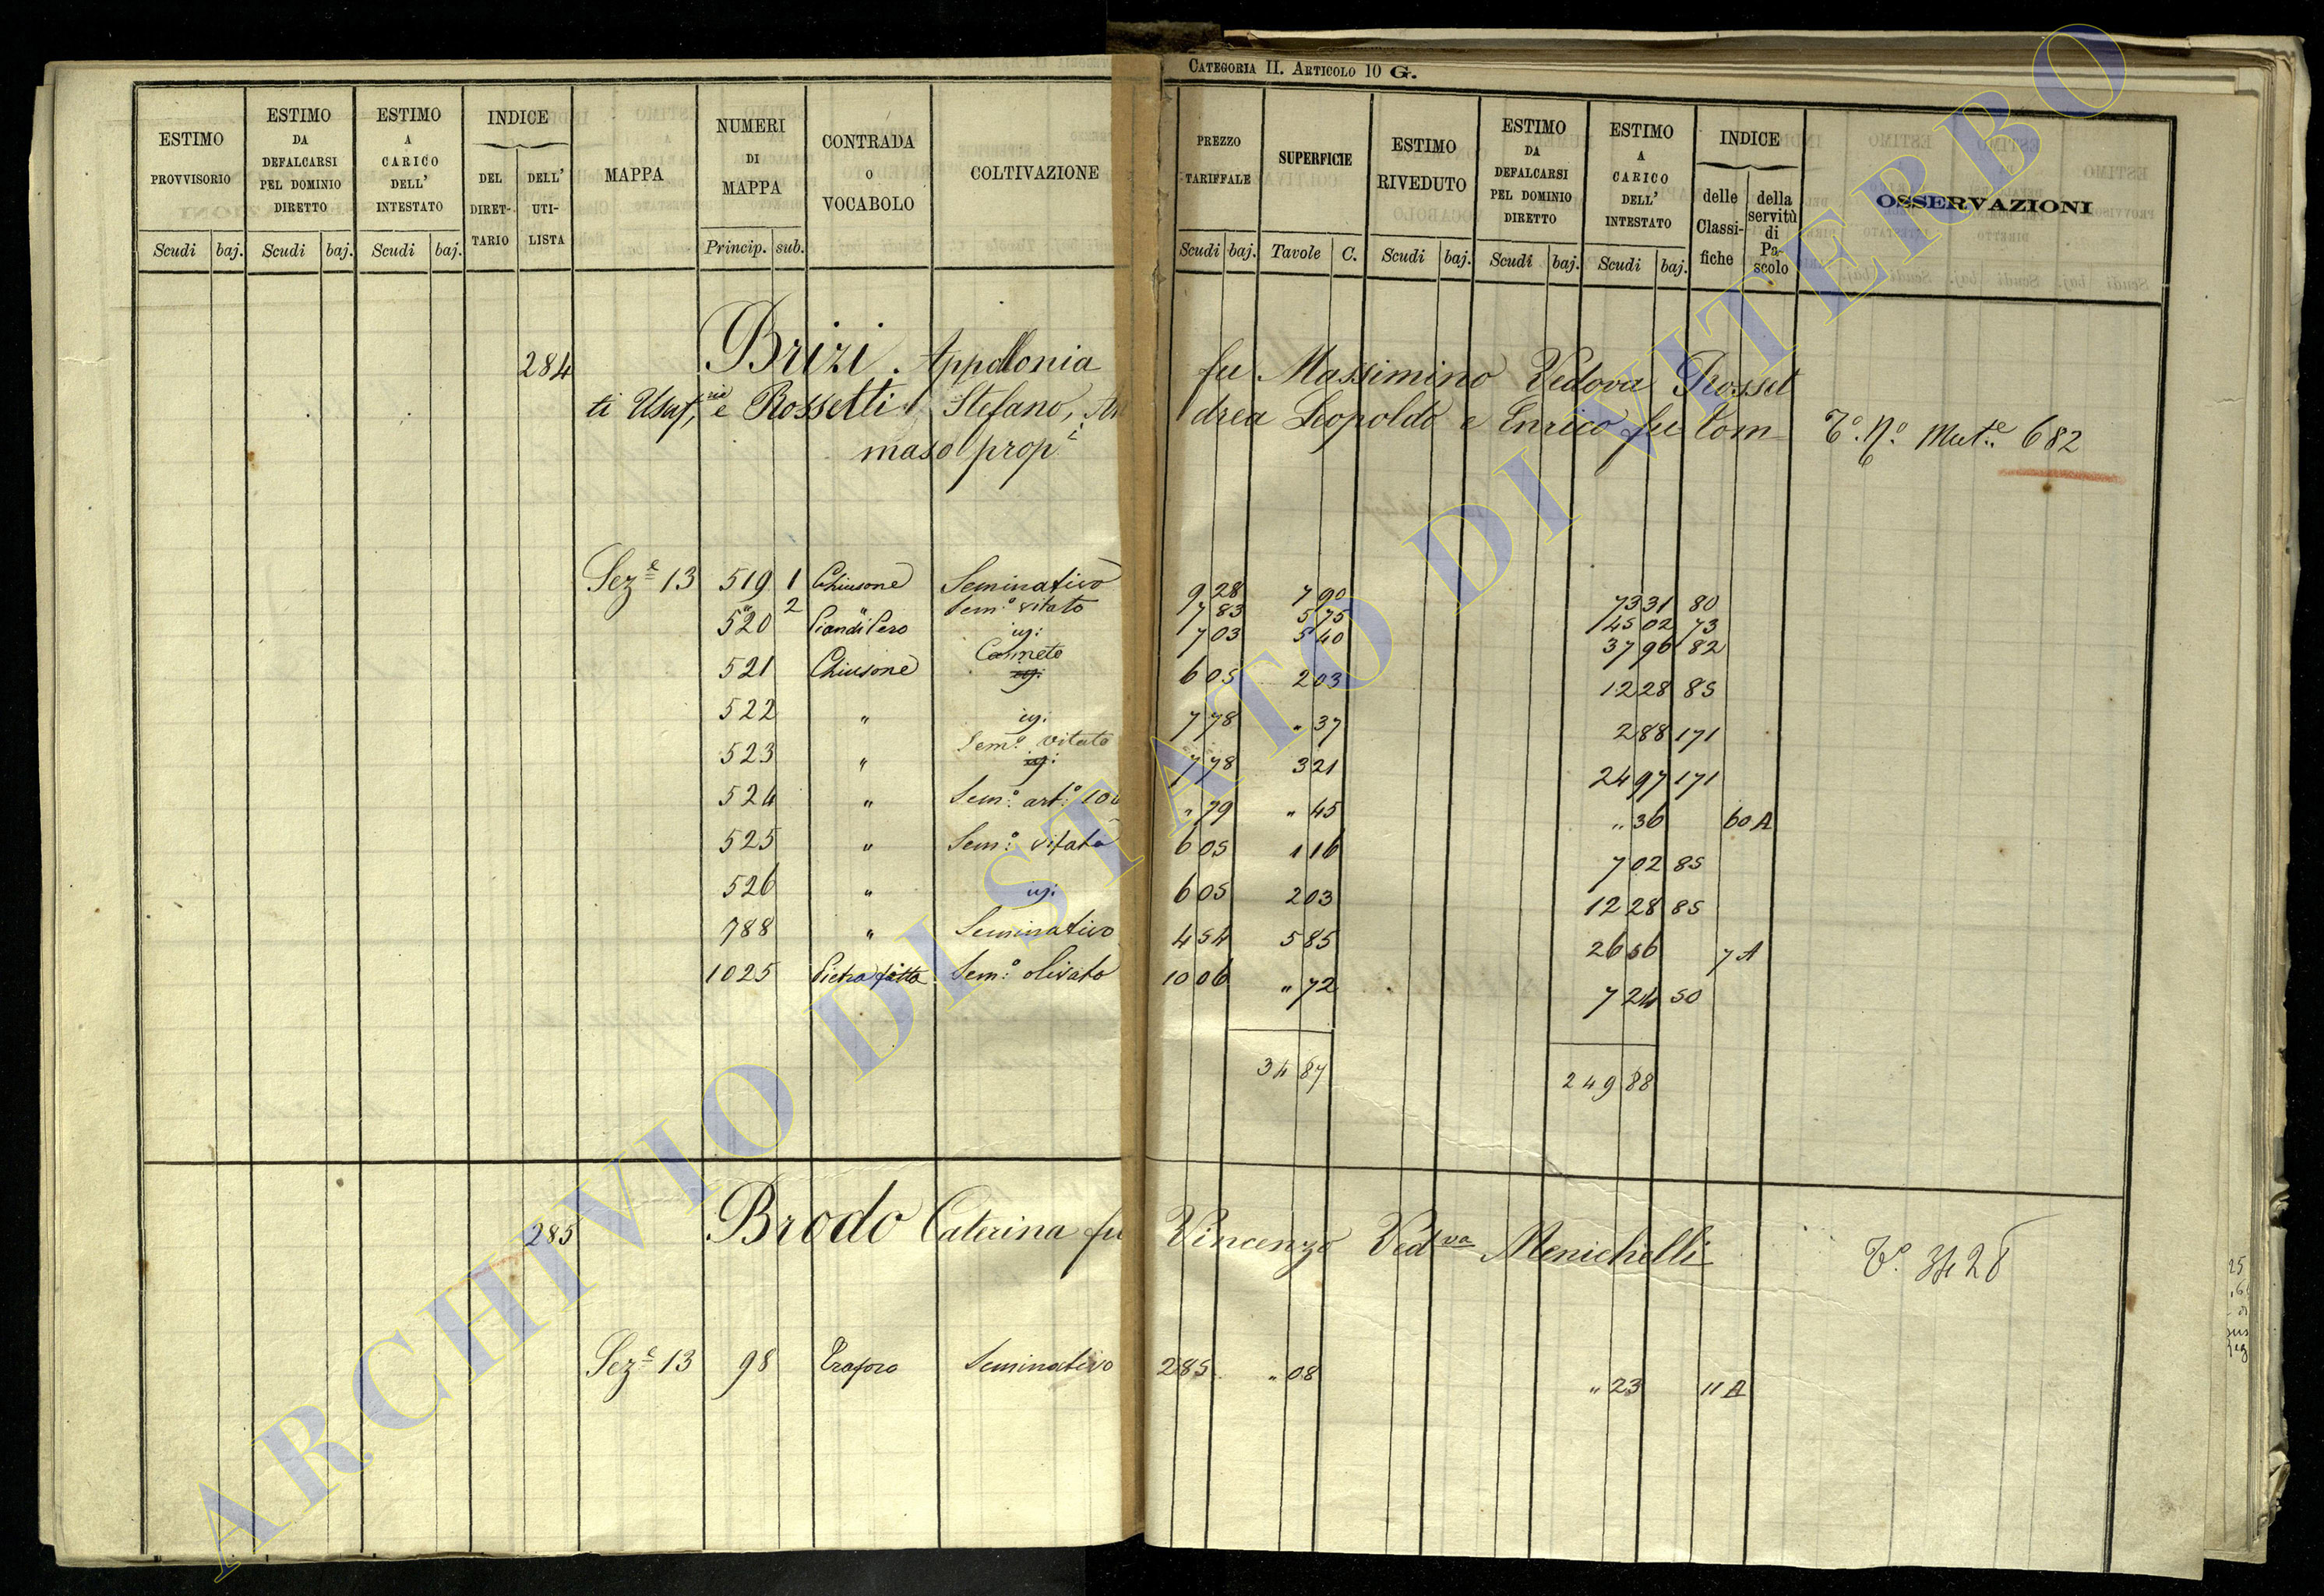 CATEGORIA II. ARTICOLO 10 G.
ESTIMO PROVVISORIO Scudi baj.
ESTIMO DA DEFALCARSI PEL DOMINIO DIRETTO Scudi baj.
ESTIMO A CARICO DELL' INTESTATO Scudi baj.
INDICE DEL DIRETTARIO DELL' UTILISTA
MAPPA
NUMERI DI MAPPA Princip. sub.
CONTRADA O VOCABOLO
COLTIVAZIONE
PREZZO TARIFFALE Scudi baj.
SUPERFICIE Tavole C.
ESTIMO RIVEDUTO Scudi baj.
ESTIMO DA DEFALCARSI PEL DOMINIO DIRETTO Scudi baj.
ESTIMO A CARICO DELL' INTESTATO Scudi baj.
INDICE delle Classifiche della servitù di Pascolo
OSSERVAZIONI
284 Brizi Appollonia fu Massimino Vedova Rosset
ti Usuf, rie e Rossetti Stefano, An drea Leopoldo e Enrico fu Tom To. No. Mut.e 682
maso prop.i
Sez.e 13 519 1 Chiusone Seminativo 9 28 7 90 73 31 80
" 2 " Sem.o vitato 7 83 5 75 45 02 73
520 Piandi Pero ig: 7 03 5 40 37 96 82
521 Chiusone Canneto ig: 6 05 2 03 12 28 85
522 " ig: 7 78 " 37 2 88 171
523 " Sem.o vitato ig: 7 78 3 21 24 97 171
524 " Sem.o art.o 100 " 79 " 45 " 36 60 A
525 " Sem.o vitato 6 05 1 16 7 02 85
526 " ig: 6 05 2 03 12 28 85
788 " Seminativo 4 54 5 85 26 56 7 A
1025 Pietra fitta Sem.o olivato 10 06 " 72 7 24 50
34 87 249 88
285 Brodo Caterina fu Vincenzo Ved.va Menichelli To. 3428
Sez.e 13 98 Traforo Seminativo 2 85 " 08 " 23 11 A
ARCHIVIO DI STATO DI VITERBO